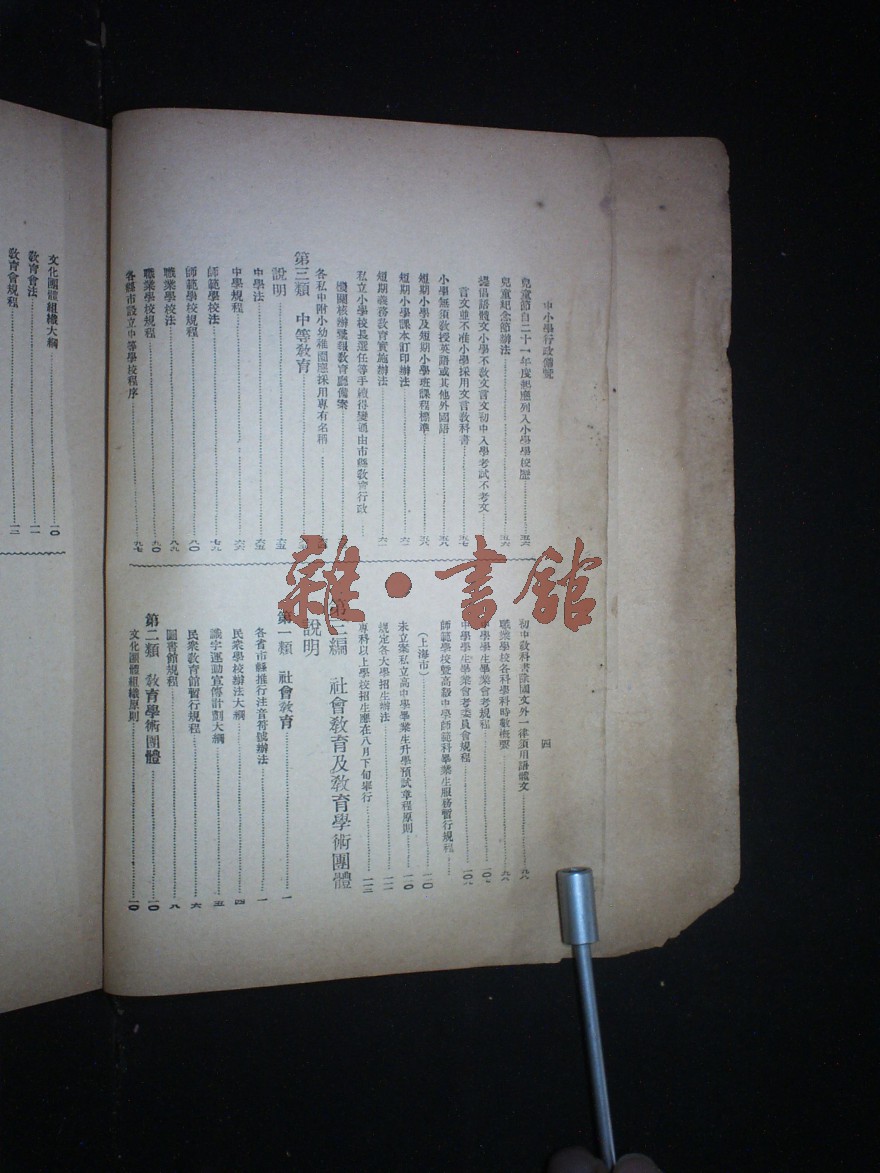 中小學行政備覽
四
兒童節自二十一年度起應列入小學學校曆……五六
兒童紀念節辦法……五六
提倡語體文小學不教文言文初中入學考試不考文
言文並不准小學採用文言教科書……五七
小學無須教授英語或其他外國語……五八
短期小學及短期小學班課程標準……五八
短期小學課本訂印辦法……六一
短期義務教育實施辦法……六二
私立小學校長選任等手續得變通由市縣教育行政
機關核辦彙報教育廳備案
各私中附小幼稚園應採用專有名稱
第三類 中等教育
說明……六五
中學法……六五
中學規程……六六
師範學校法……七九
師範學校規程……八〇
職業學校法……八九
職業學校規程……九〇
各縣市設立中等學校程序……九七
初中教科書除國文外一律須用語體文……九八
職業學校各科學科時數概要……九八
中學學生畢業會考規程……一〇七
中學學生畢業會考委員會規程……一〇八
師範學校暨高級中學師範科畢業生服務暫行規程
(上海市)……一一〇
未立案私立高中學畢業生升學預試章程原則……一一〇
規定各大學招生辦法……一一二
專科以上學校招生應在八月下旬舉行……一一三
第三編 社會教育及教育學術團體
說明
第一類 社會教育……一
各省市縣推行注音符號辦法……一
民眾學校辦法大綱……四
識字運動宣傳計劃大綱……五
民眾教育館暫行規程……六
圖書館規程……八
第二類 教育學術團體……一〇
文化團體組織原則……一〇
文化團體組織大綱……一〇
教育會法……一一
教育會規程……一三
雜·書館